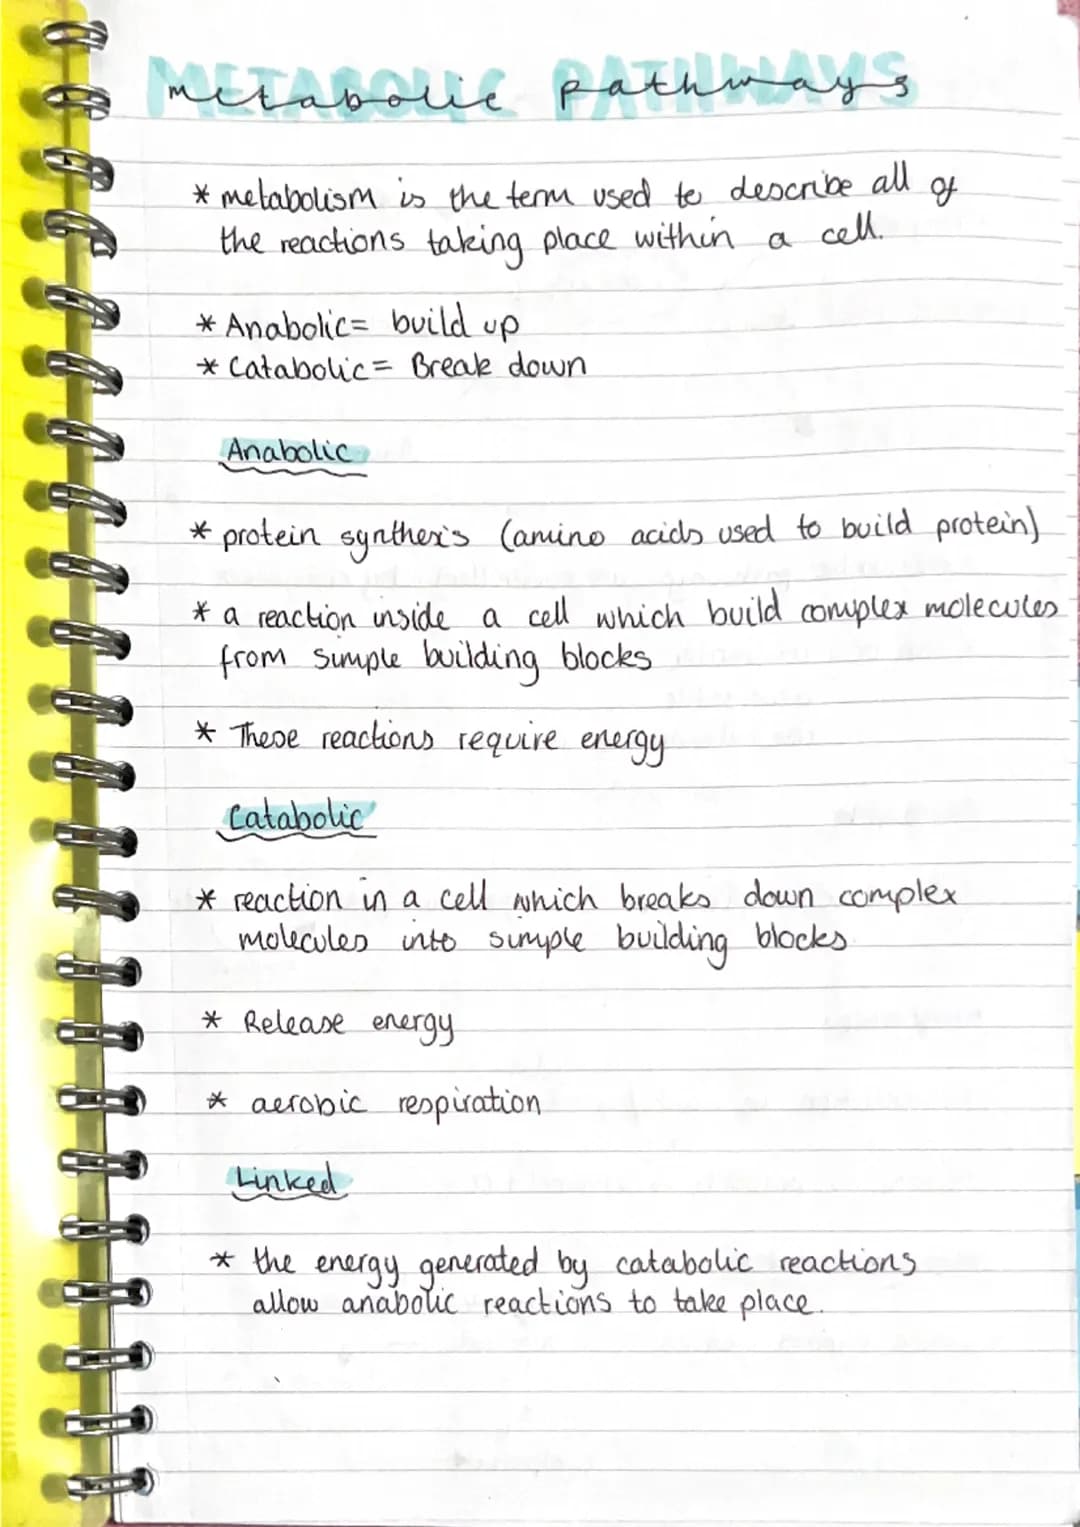 METABOLIC PATHWAYS
metabolic pathways
* metabolism is the term used to describe all of
the reactions taking place within a cell.
* Anabolic = build up
* Catabolic = Break down
Anabolic
* protein synthesis (amino acids used to build protein)
* a reaction inside a cell which build complex molecules
from simple building blocks
* These reactions require energy
Catabolic
* reaction in a cell which breaks down complex
molecules into simple building blocks
* Release energy
* aerobic respiration
Linked
* the energy generated by catabolic reactions
allow anabolic reactions to take place.